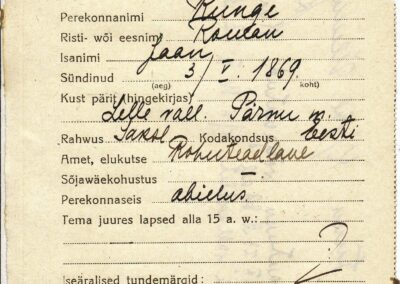 Perekonnanimi Runge
Risti- wõi eesnimi
Isanimi Jaan
Sündinud 3/V. 1869.
(aeg) koht)
Kust pärit (hingekirjas)
Lelle vall. Pärnu m.
Rahwus Saksl. Kodakondsus Eesti
Amet, elukutse Rohuteadlane
Sõjawäekohustus —
Perekonnaseis abielus
Tema juures lapsed alla 15 a. w.:
?
Iseäralised tundemärgid: